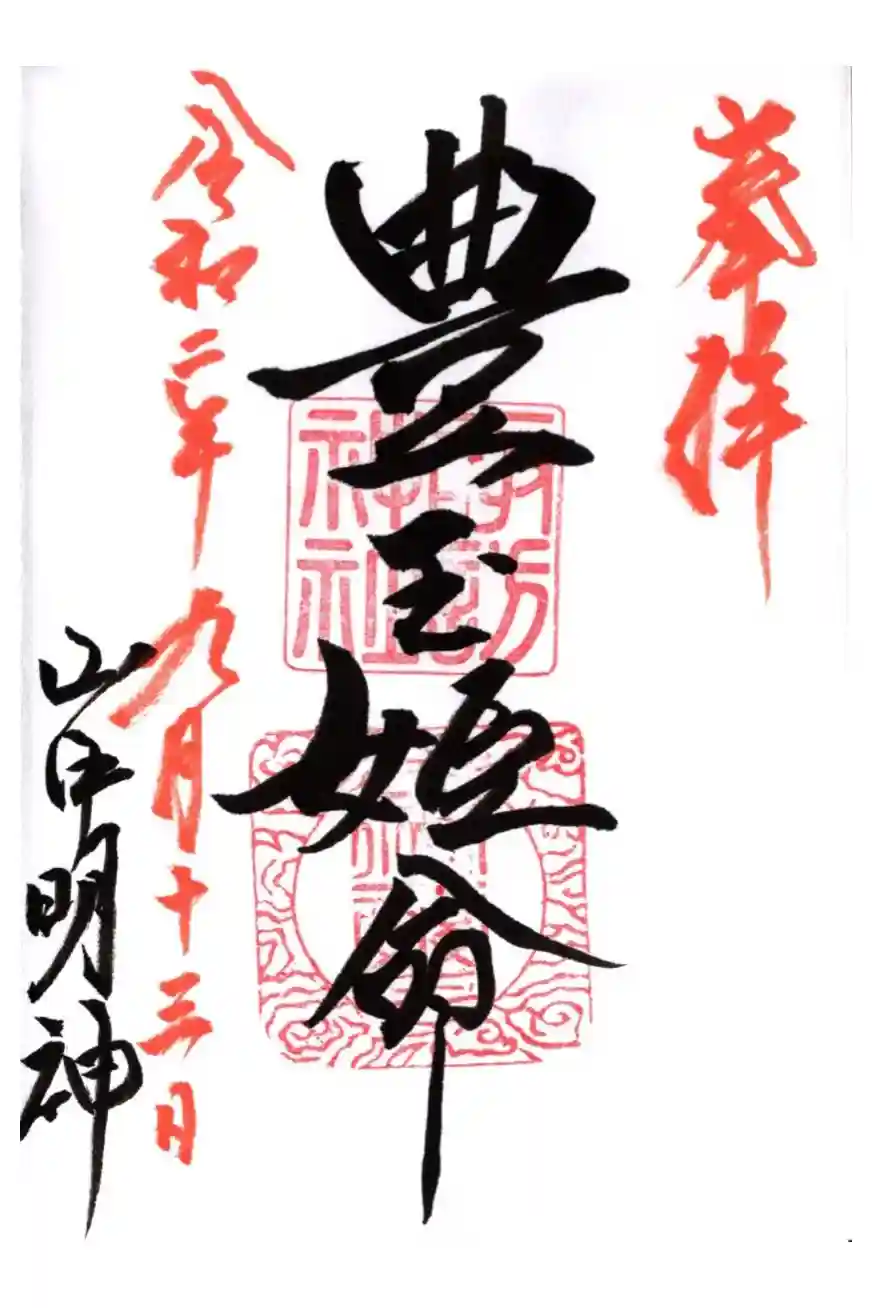 奉拝
豊玉姫命
諏訪神社
令和二年九月十三日
山中明神